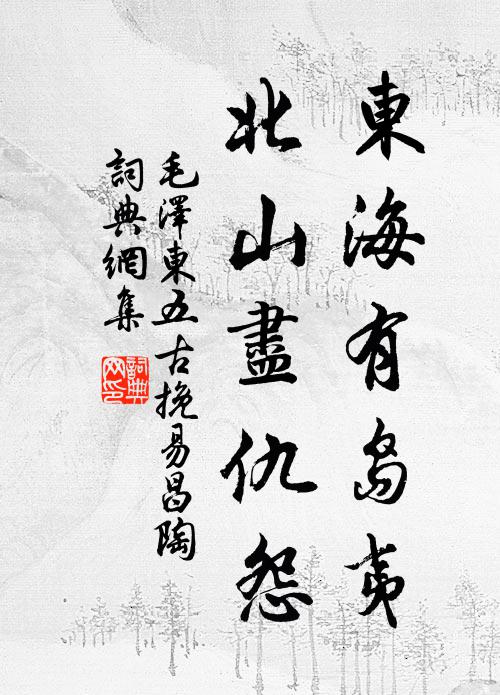 東海有島夷
北山盡仇怨
毛澤東五古挽易昌陶
詞典網集
詞典網印